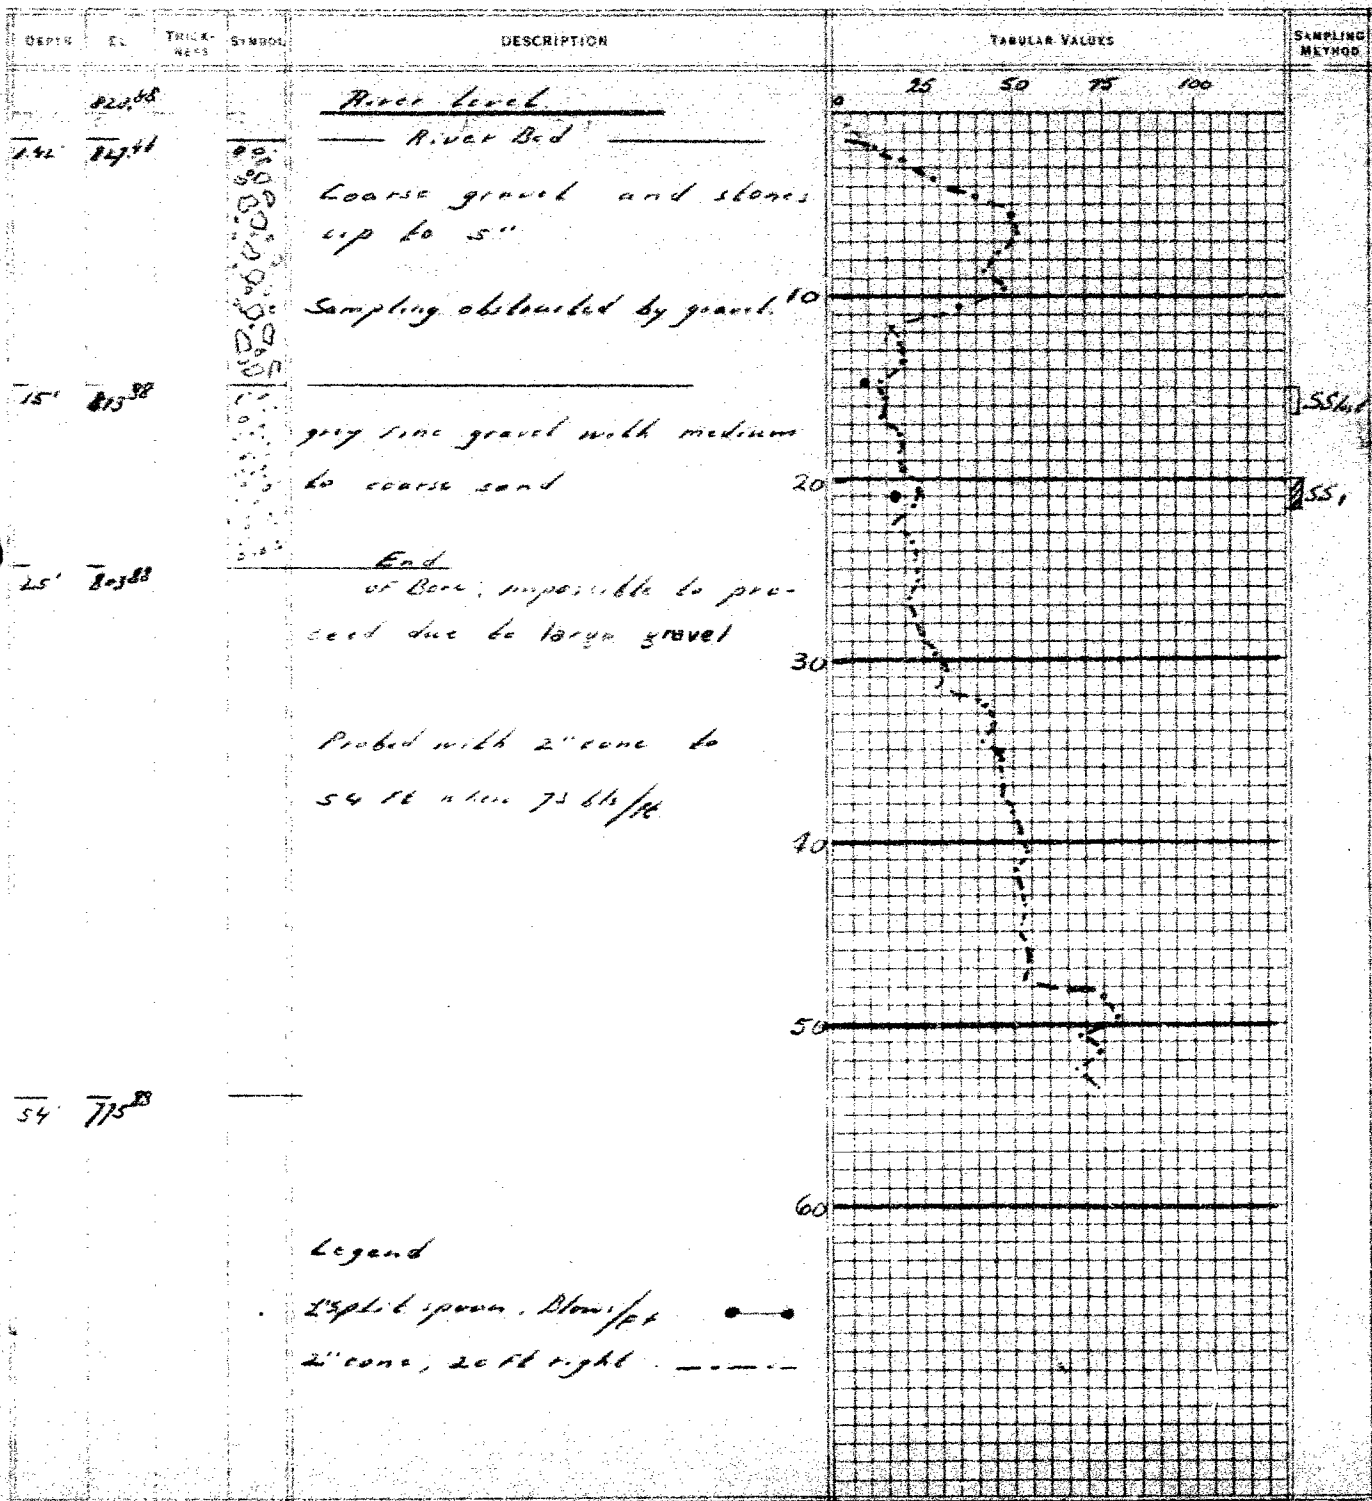 DEPTH EL THICK-NESS SYMBOL DESCRIPTION TABULAR VALUES SAMPLING METHOD
0 25 50 75 100
River Level
River Bed
Coarse gravel and stones
up to 5"
Sampling obstructed by gravel.
10
15' 813.88
grey fine gravel with medium
to coarse sand
20
SS1
End
25' 803.88
of Bore, impossible to pro-
ceed due to large gravel
30
Probed with 2" cone to
54 ft when 73 bls/ft
40
50
54' 775
60
Legend
2" split spoon. Blows/ft
2" cone, 20 ft right